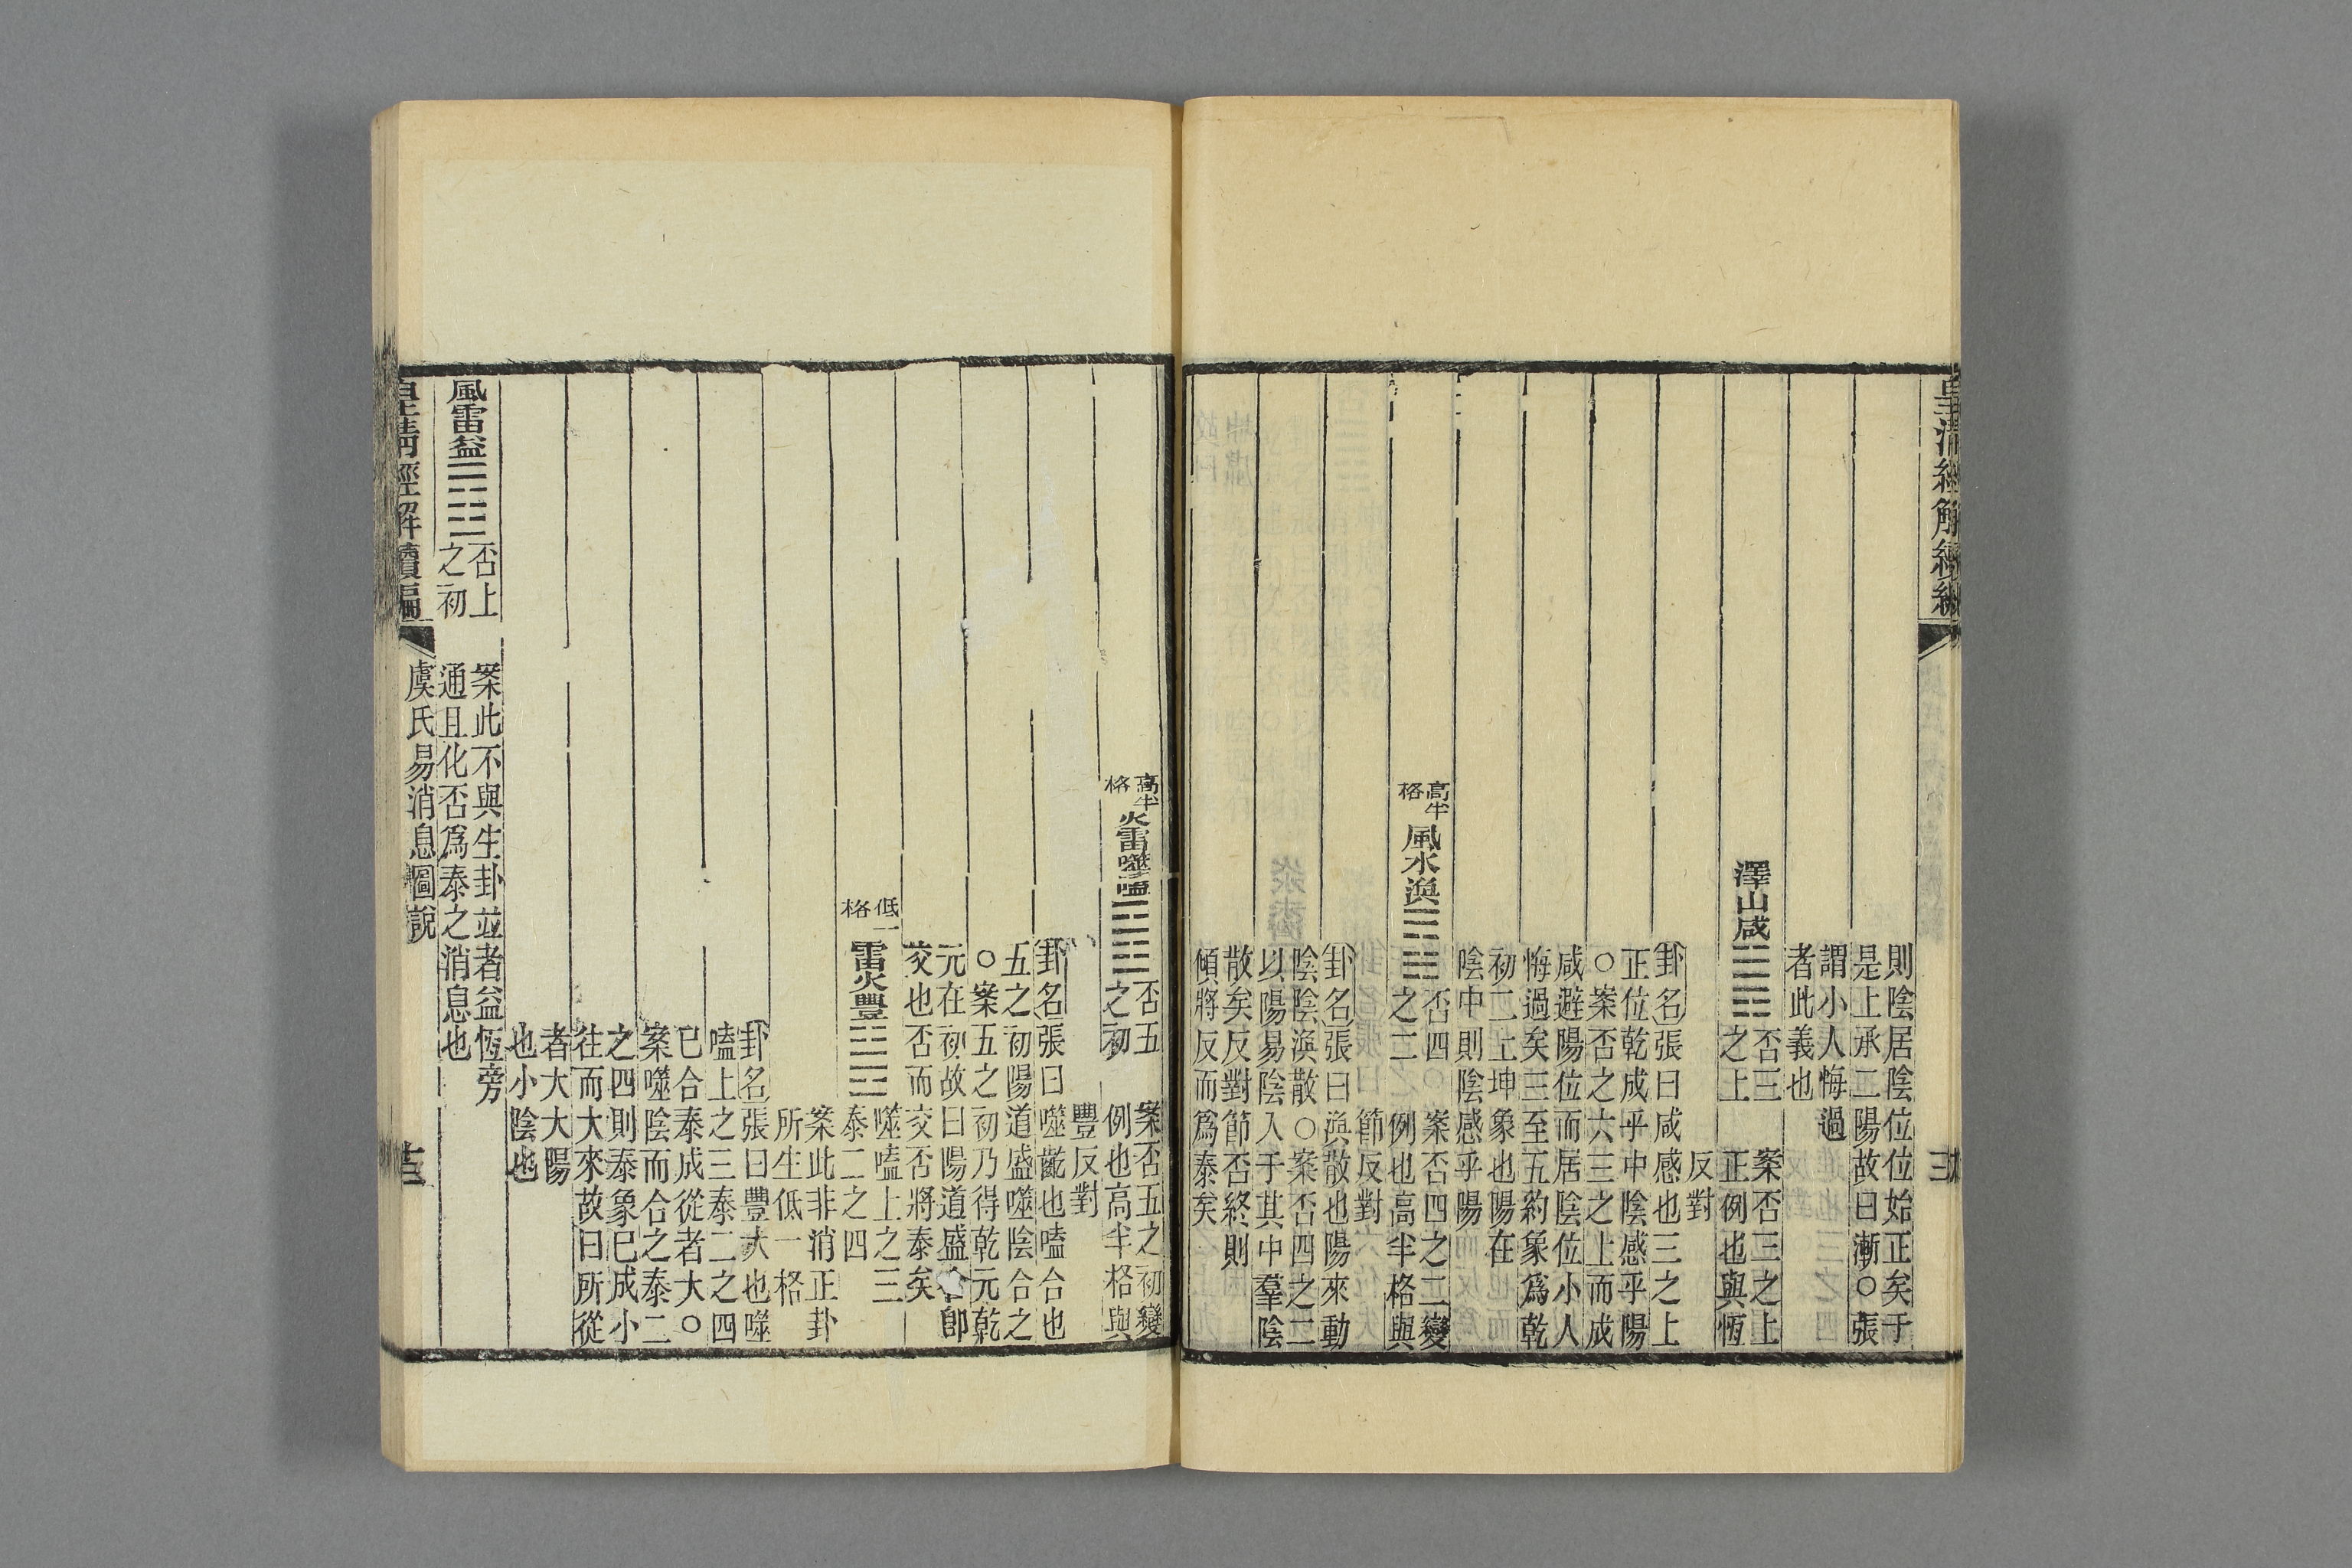 皇清經解續編
則陰居陰位位始正矣于
是上承二陽故曰漸○張
謂小人悔過
者此義也
澤山咸䷞否三
之上
案否三之上
正例也與恆
反對
卦名張曰咸感也三之上
正位乾成乎中陰感乎陽
○案否之六三之上而成
咸避陽位而居陰位小人
悔過矣三至五約象爲乾
初二上坤象也陽在
陰中則陰感乎陽
高半
格
風水渙䷺否四
之二
案否四之二變
例也高半格與
節反對
卦名張曰渙散也陽來動
陰陰渙散○案否四之二
以陽易陰入于其中羣陰
散矣反對節否終則
傾將反而爲泰矣
高半
格
火雷噬嗑䷔否五
之初
案否五之初變
例也高半格與
豐反對
卦名張曰噬齧也嗑合也
五之初陽道盛噬陰合之
○案五之初乃得乾元乾
元在初故曰陽道盛合卽
交也否而交否將泰矣
低一
格
雷火豐䷶噬嗑上之三
泰二之四
案此非消正卦
所生低一格
卦名張曰豐大也噬
嗑上之三泰二之四
已合泰成從者大○
案噬陰而合之泰二
之四則泰象已成小
往而大來故曰所從
者大大陽
也小陰也
風雷益䷩否上
之初
案此不與生卦並者益恆旁
通且化否爲泰之消息也
皇清經解續編
虞氏易消息圖說